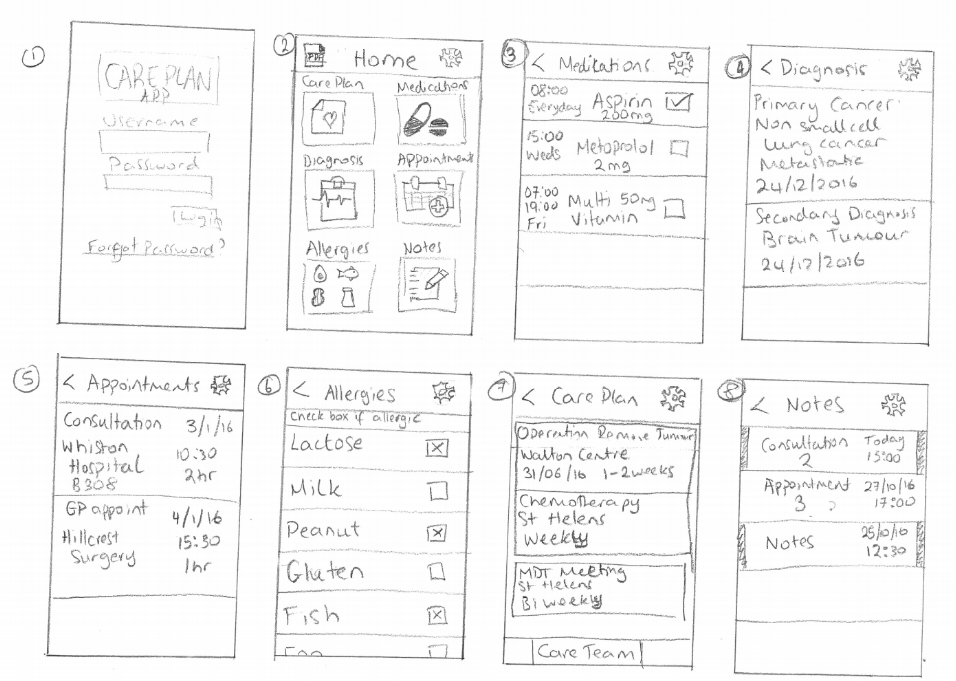 1
CARE PLAN
APP
Username
Password
Login
Forgot Password?
2
PDF
Home
Care Plan
Medications
Diagnosis
Appointments
Allergies
Notes
3
< Medications
08:00
Everyday
Aspirin
200mg
15:00
Weds
Metoprolol
2mg
07:00
19:00
Fri
Multi 50mg
Vitamin
4
< Diagnosis
Primary Cancer:
Non small cell
lung cancer
Metastatic
24/12/2016
Secondary Diagnosis
Brain Tumour
24/12/2016
5
< Appointments
Consultation 3/1/16
Whiston 10:30
Hospital 2hr
B308
GP appoint 4/1/16
Hillcrest 15:30
Surgery 1hr
6
< Allergies
Check box if allergic
Lactose
Milk
Peanut
Gluten
Fish
7
< Care Plan
Operation Remove Tumur
Walton Centre
31/06/16 1-2weeks
Chemotherapy
St Helens
Weekly
MDT Meeting
St Helens
Bi weekly
Care Team
8
< Notes
Consultation Today
2 15:00
Appointment 27/10/16
3 17:00
Notes 25/10/16
12:30